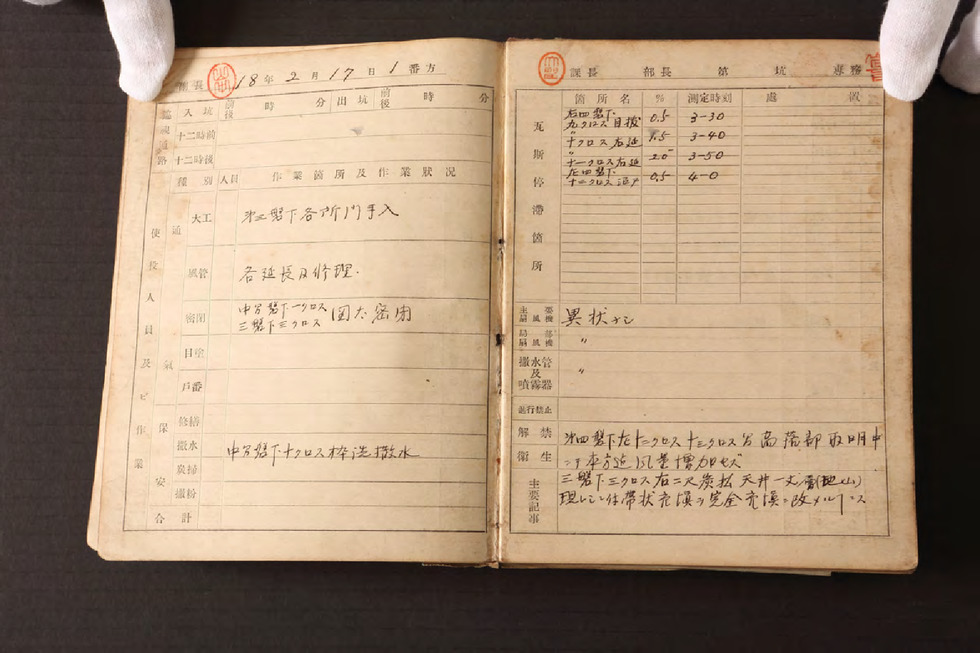 18年2月17日1番方
巡視通路
入坑 前後 時 分 出坑 前後 時 分
十二時前
十二時後
種別 人員 作業箇所及作業狀況
使役人員及ビ作業
通氣
大工 各所門手入
風管 各延長及修理.
密閉 中分盤下一クロス
三盤下三クロス
目塗
戸番
保安
修繕
撒水 中分盤下十クロス枠洗撒水
炭掃
撒粉
合計
課長 部長 第 坑 専務
瓦斯停滯箇所
箇所名 % 測定時刻 處置
右四盤下
九クロス目抜 0.5 3-30
〃
十クロス右延 1.5 3-40
〃
十一クロス右延 2.0 3-50
左四盤下
十二クロス 0.5 4-0
主要扇風機 異状ナシ
局部扇風機 〃
撒水管及噴霧器 〃
通行禁止
解禁
衛生
第四盤下左十二クロス十三クロス 高落部取明中
風量増加
主要記事
三盤下三クロス右二尺炭払 天井一丈
帯状充填ヲ完全充填ニ改メ